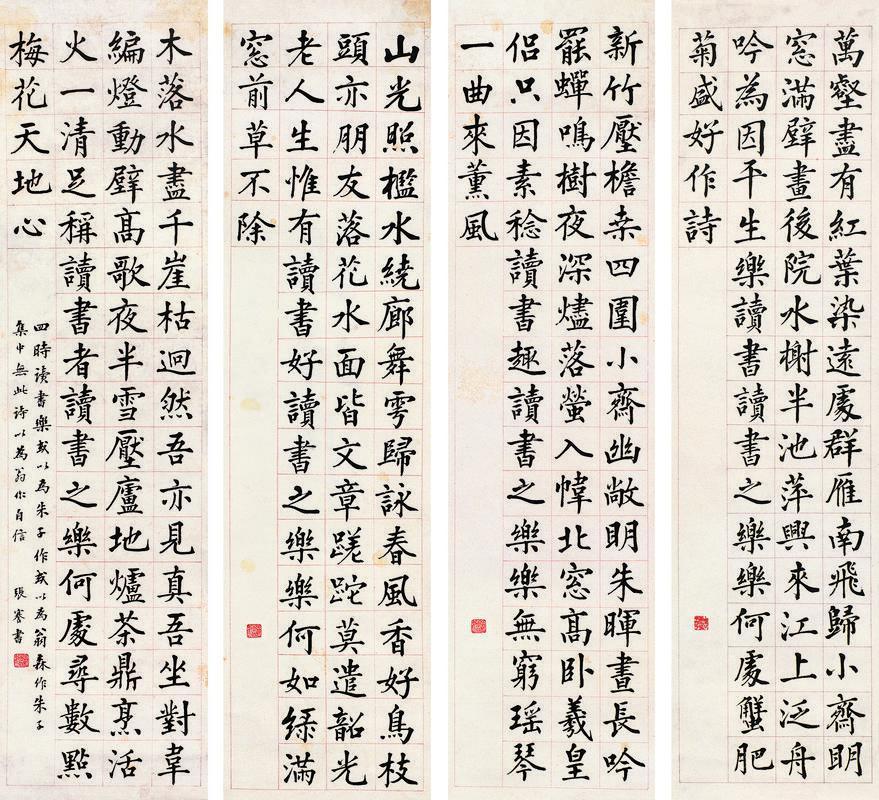 萬壑盡有紅葉染遠處群雁南飛歸小齋明
窓滿壁畫後院水榭半池萍興來江上泛舟
吟為因平生樂讀書讀書之樂樂何處蟹肥
菊盛好作詩
新竹壓檐桒四圍小齋幽敞明朱暉晝長吟
罷蟬鳴樹夜深燼落螢入幃北窓高卧羲皇
侶只因素稔讀書趣讀書之樂樂無窮瑤琴
一曲來薰風
山光照檻水繞廊舞雩歸詠春風香好鳥枝
頭亦朋友落花水面皆文章蹉跎莫遣韶光
老人生惟有讀書好讀書之樂樂何如綠滿
窓前草不除
木落水盡千崖枯迥然吾亦見真吾坐對韋
編燈動壁高歌夜半雪壓廬地爐茶鼎烹活
火一清足稱讀書者讀書之樂何處尋數點
梅花天地心
四時读書樂或以為朱子作或以為翁森作朱子
集中無此诗以為翁作自信 張謇書